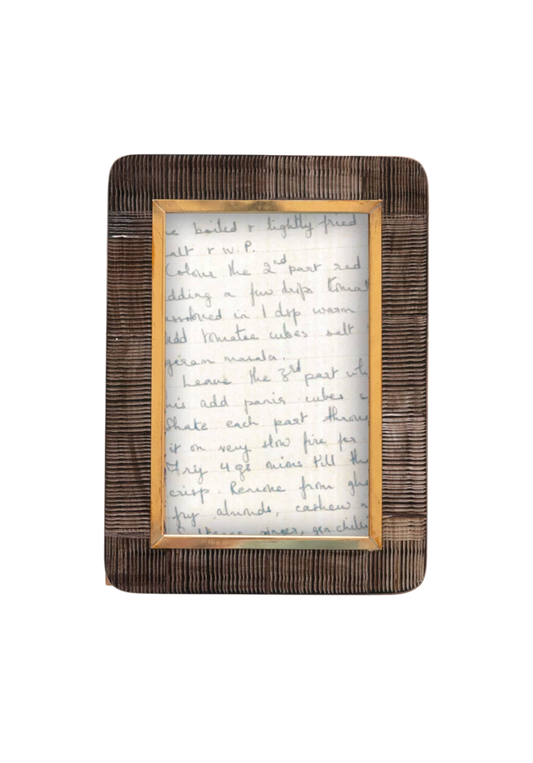 e boiled & lightly fried
alt & w.P.
Colour the 2nd part red
dding a few drops tomat
ssolved in 1 dsp warm
add tomatoe cubes salt
garam masala.
Leave the 3rd part wh
his add panir cubes
Shake each part throu
it on very slow fire for
Fry 4 gs onions till th
crisp. Remove from ghe
fry almonds, cashew
ginger, grn. chilli